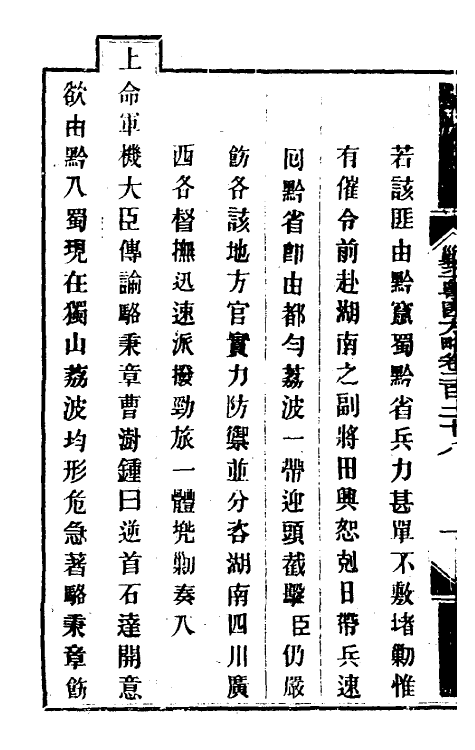 若該匪由黔竄蜀黔省兵力甚單不敷堵勦惟
有催令前赴湖南之副將田興恕剋日帶兵速
回黔省卽由都勻荔波一帶迎頭截擊臣仍嚴
飭各該地方官實力防禦並分咨湖南四川廣
西各督撫迅速派撥勁旅一體堵勦奏入
上命軍機大臣傳諭駱秉章曹澍鍾曰逆首石達開意
欲由黔入蜀現在獨山荔波均形危急著駱秉章飭
勦平粵匪方略卷二百二十八
一